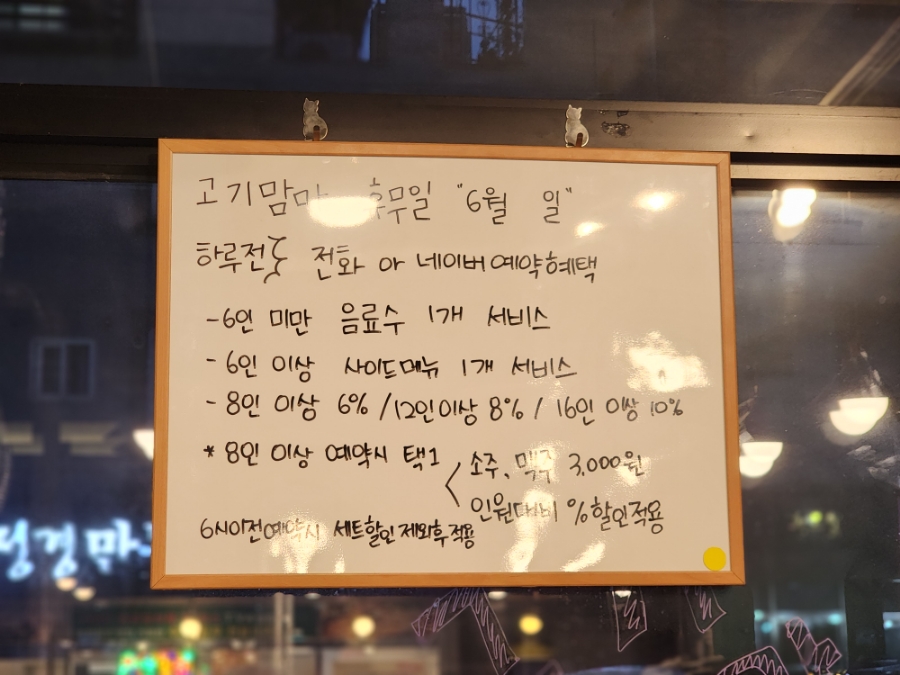 고기맘마 휴무일 "6월 일"
하루전날 전화 or 네이버예약혜택
-6인 미만 음료수 1개 서비스
- 6인 이상 사이드메뉴 1개 서비스
- 8인 이상 6% / 12인이상 8% / 16인 이상 10%
* 8인 이상 예약시 택1
소주, 맥주 3,000원
인원대비 %할인적용
6시이전예약시 세트할인제외후적용